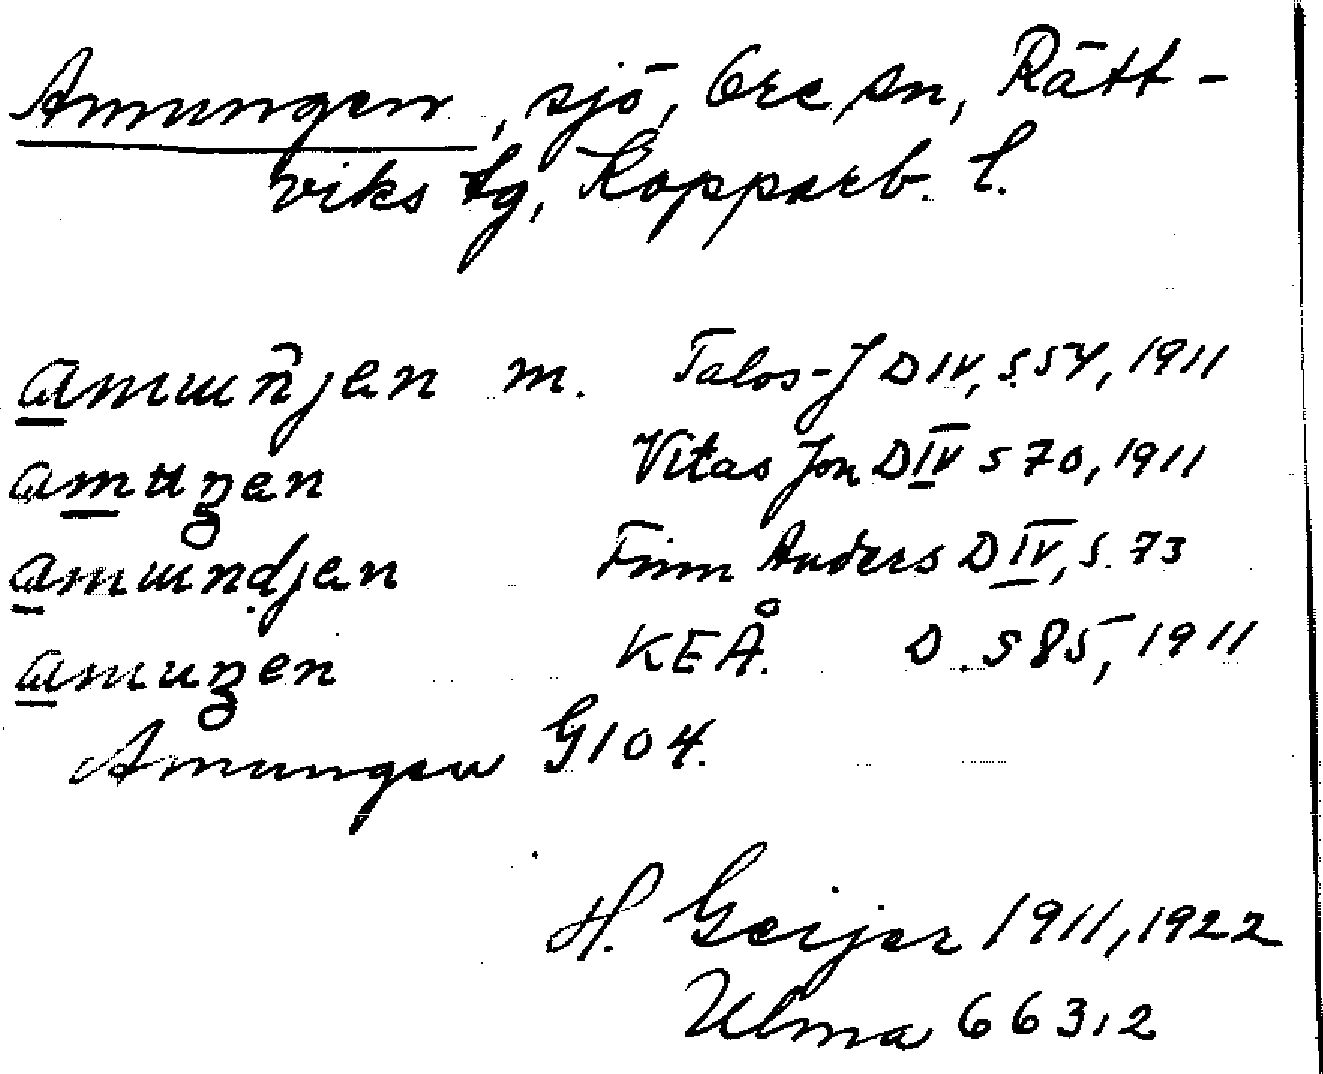 Amungen, sjö, Ore sn, Rätt-
viks tg, Kopparb. l.
amuɯn̂jen m. Talos-J D IV, s. 54, 1911
Vitas Jon D IV s 70, 1911
amɯndjen Finn Anders D IV, s. 73
amuŋen KEÅ. D. s 85, 1911
Amungen G104.
H. Geijer 1911, 1922
Ulma 663,2